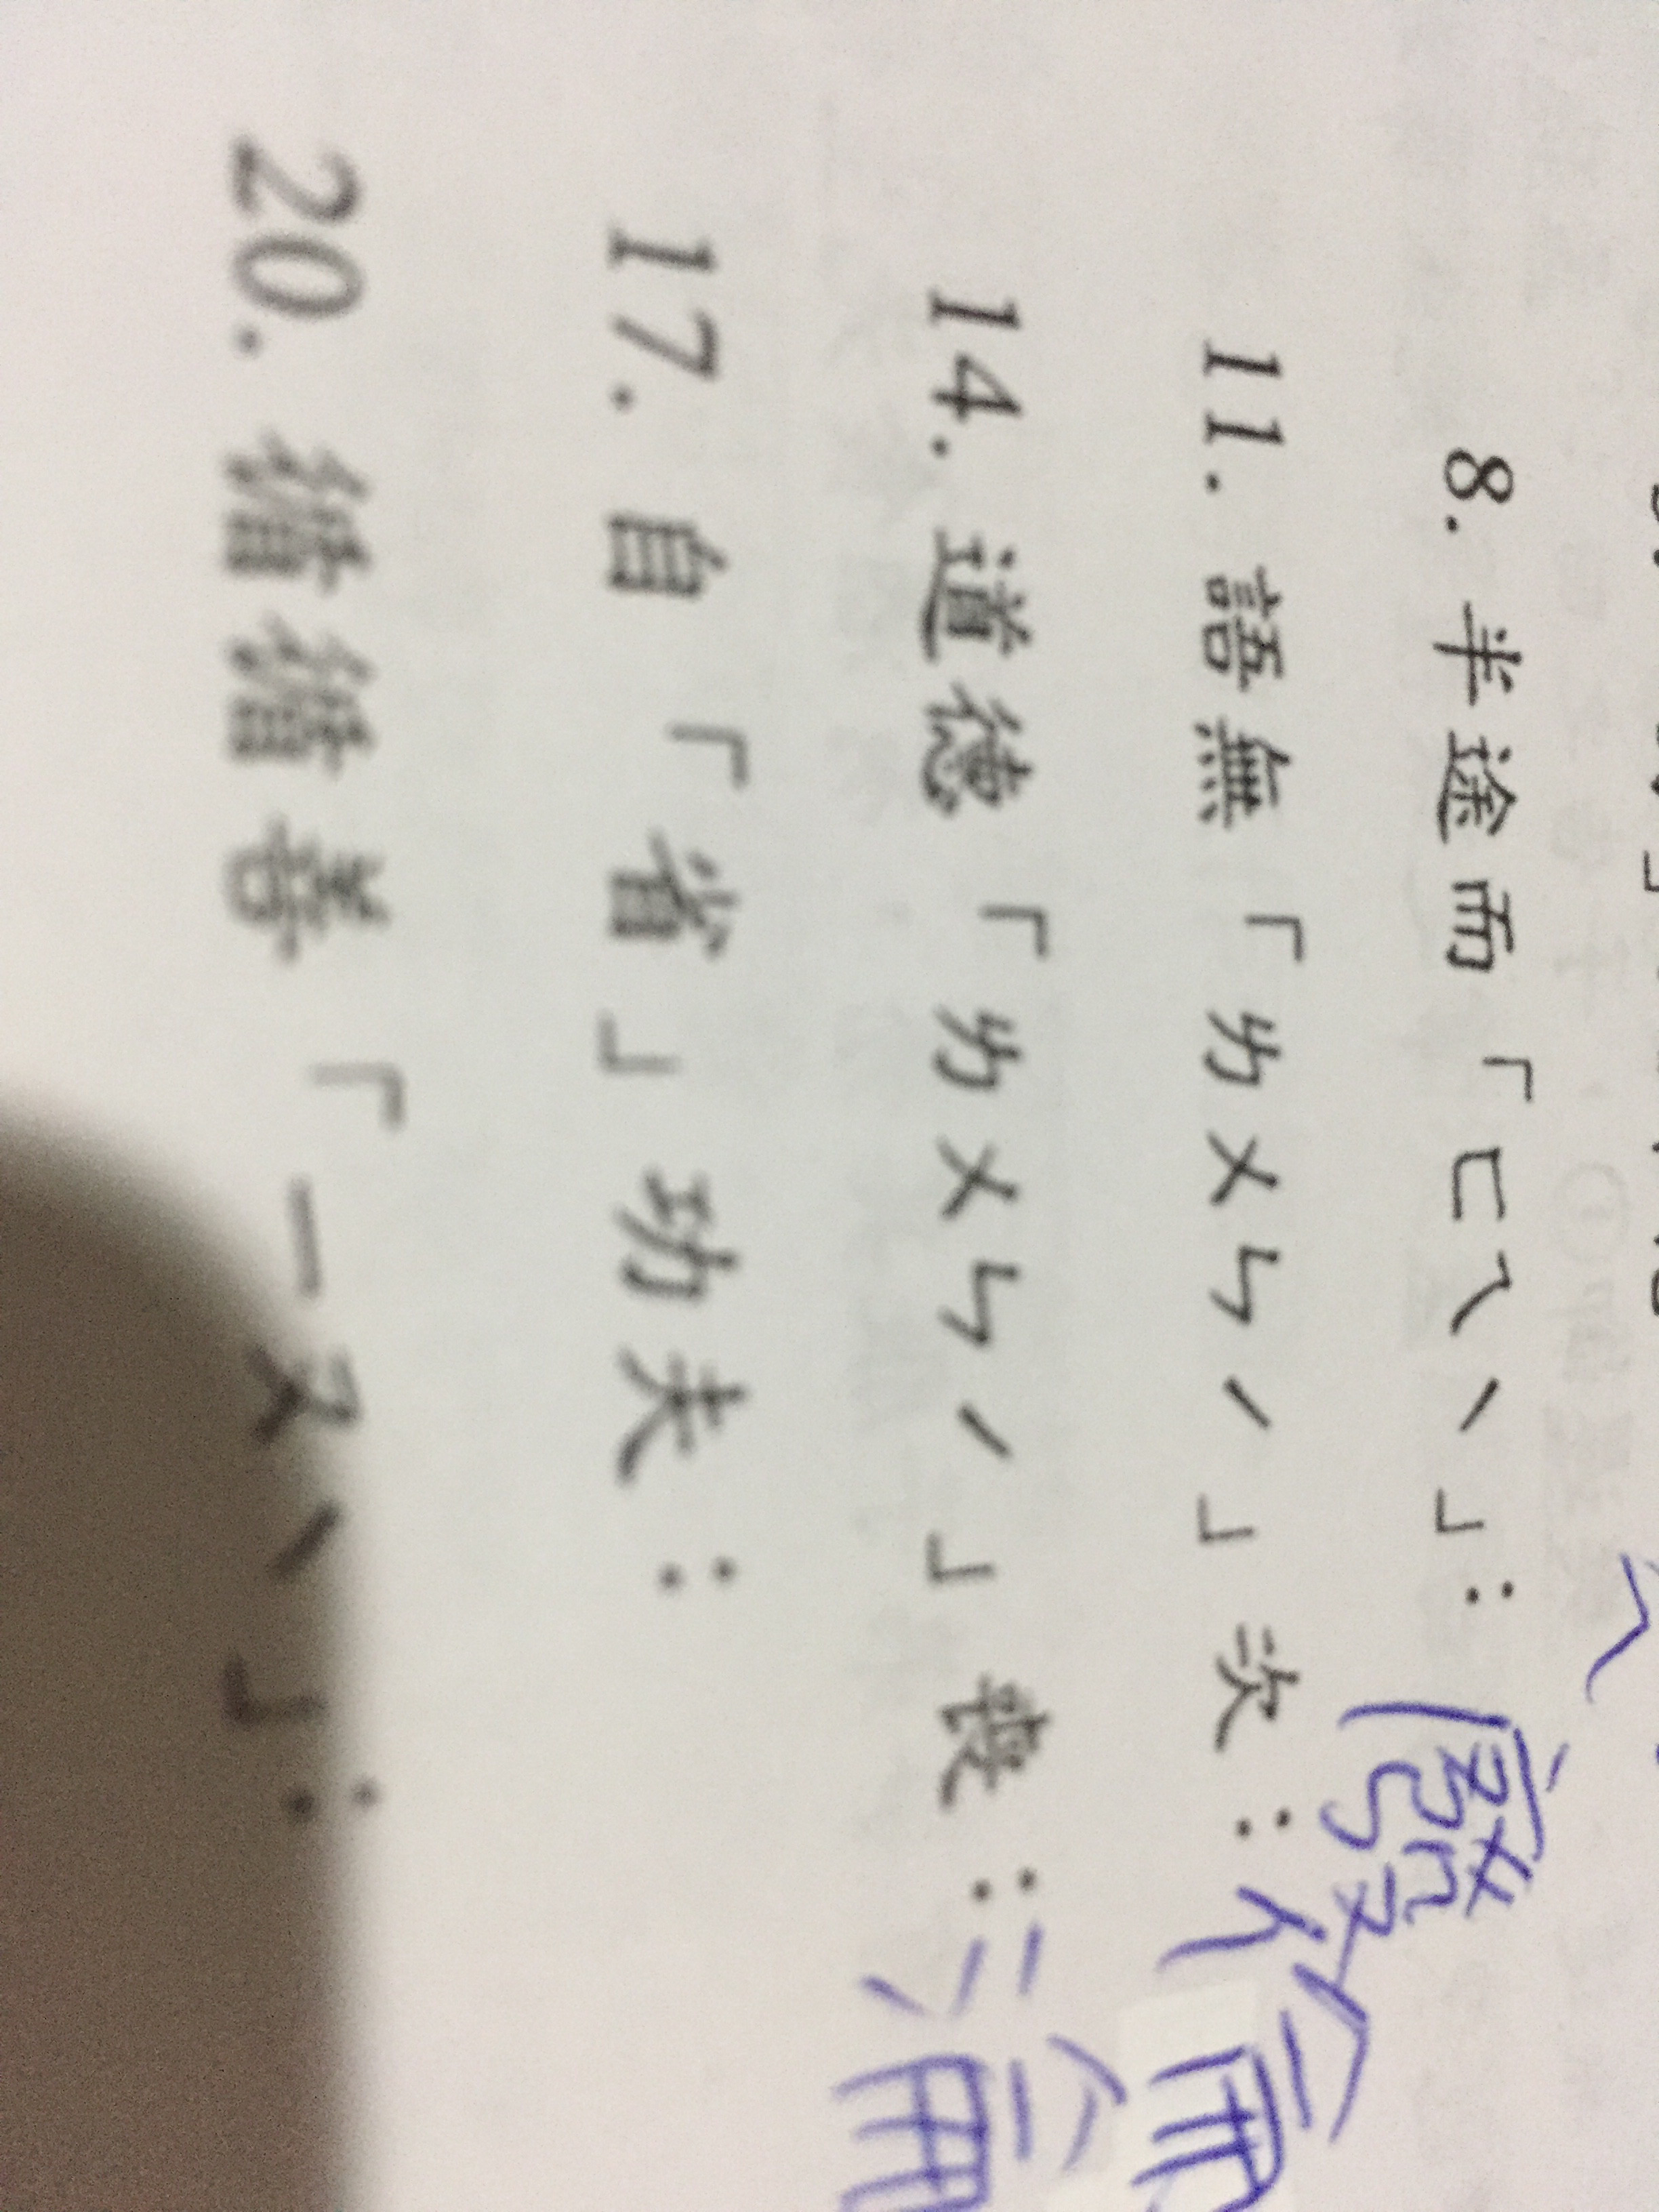 8. 半途而「ㄈㄟˋ」：廢
11. 語無「ㄌㄨㄣˊ」次：倫
14. 道德「ㄌㄨㄣˊ」喪：淪
17. 自「省」功夫：
20. 循循善「ㄧㄡˋ」：